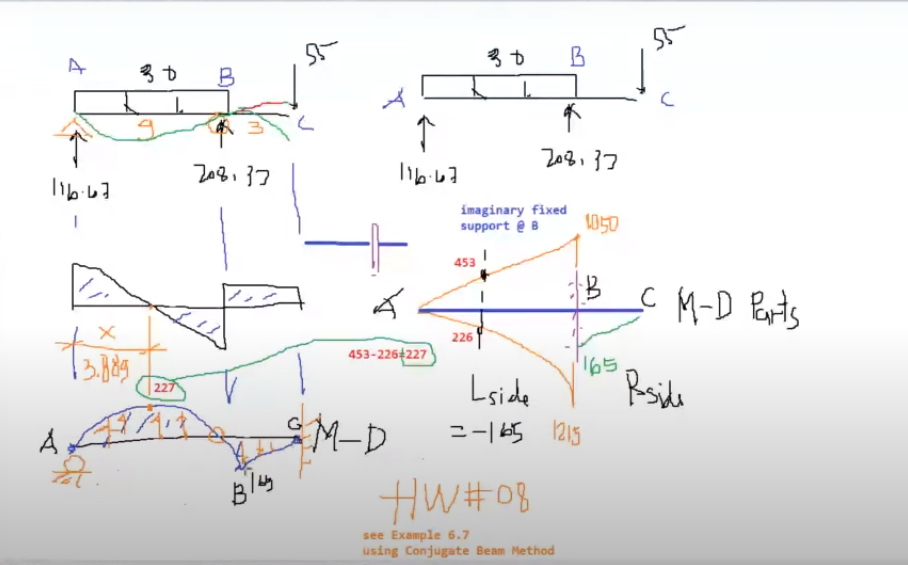 A
30
B
55
9
3
C
116.67
208.37
A
30
B
55
C
116.67
208.37
imaginary fixed
support @ B
1050
453
A
B
C
M-D Parts
226
165
Lside
= -165
Rside
1215
x
3.889
453-226=227
227
A
C
M-D
B
HW#08
see Example 6.7
using Conjugate Beam Method